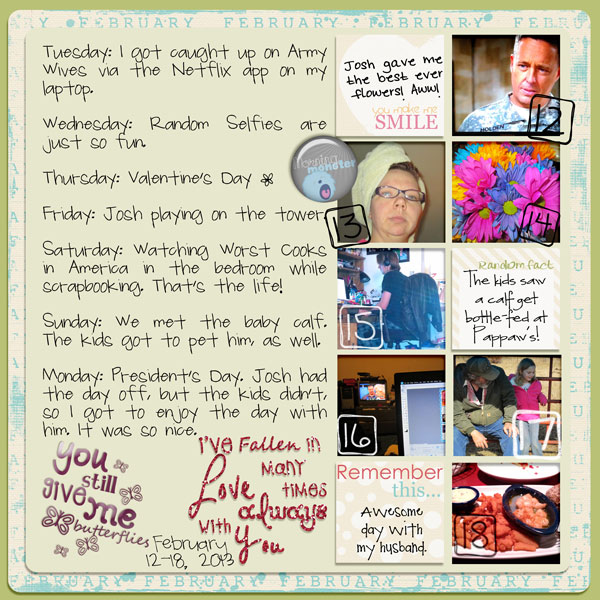 FEBRUARY FEBRUARY FEBRUARY FEBRUARY
Tuesday: I got caught up on Army
Wives via the Netflix app on my
laptop.
Wednesday: Random Selfies are
just so fun.
Thursday: Valentine's Day
Friday: Josh playing on the tower.
Saturday: Watching Worst Cooks
in America in the bedroom while
scrapbooking. That's the life!
Sunday: We met the baby calf.
The kids got to pet him, as well.
Monday: President's Day. Josh had
the day off, but the kids didn't,
so I got to enjoy the day with
him. It was so nice.
you
still
give me
butterflies
I've Fallen in
Love
MANY
times
always
with You
February
12-18, 2013
Josh gave me
the best ever
flowers! Aww!
you make me
SMILE
HOLDEN
12
monster
13
14
15
Random fact
The kids saw
a calf get
bottle-fed at
Pappaw's!
16
17
Remember
this...
Awesome
day with
my husband.
18
FEBRUARY FEBRUARY FEBRUARY FEBRUARY